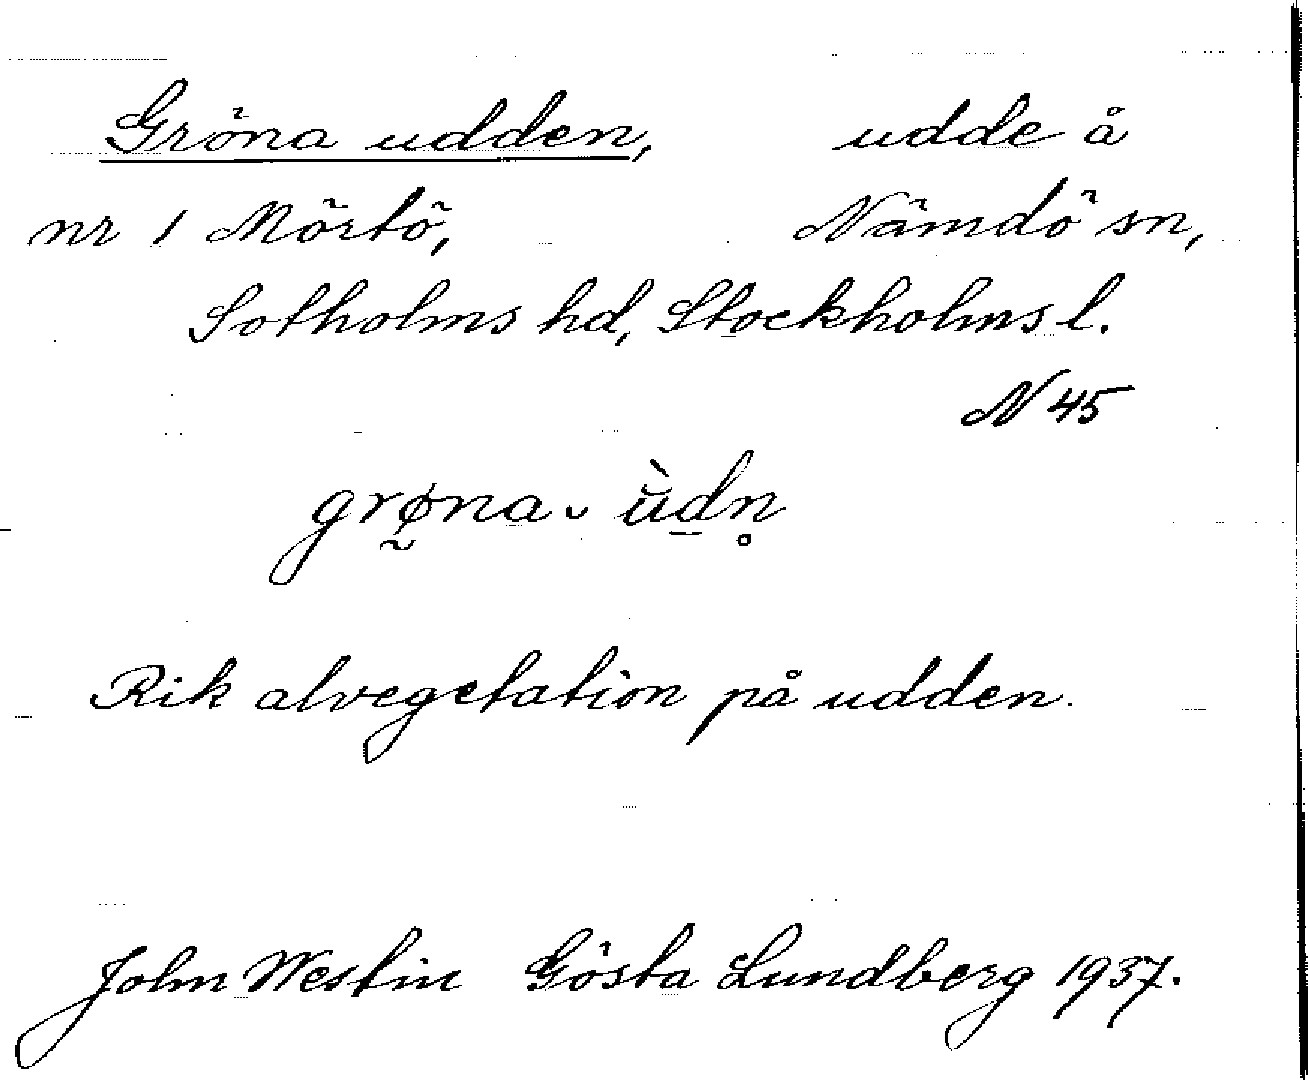 Gröna udden, udde å
nr 1 Mörtö, Nämdö sn,
Sotholms hd, Stockholms l.
N 45
grø̰na ̆ ùd̲n̥
Rik alvegetation på udden.
John Westin Gösta Lundberg 1937.